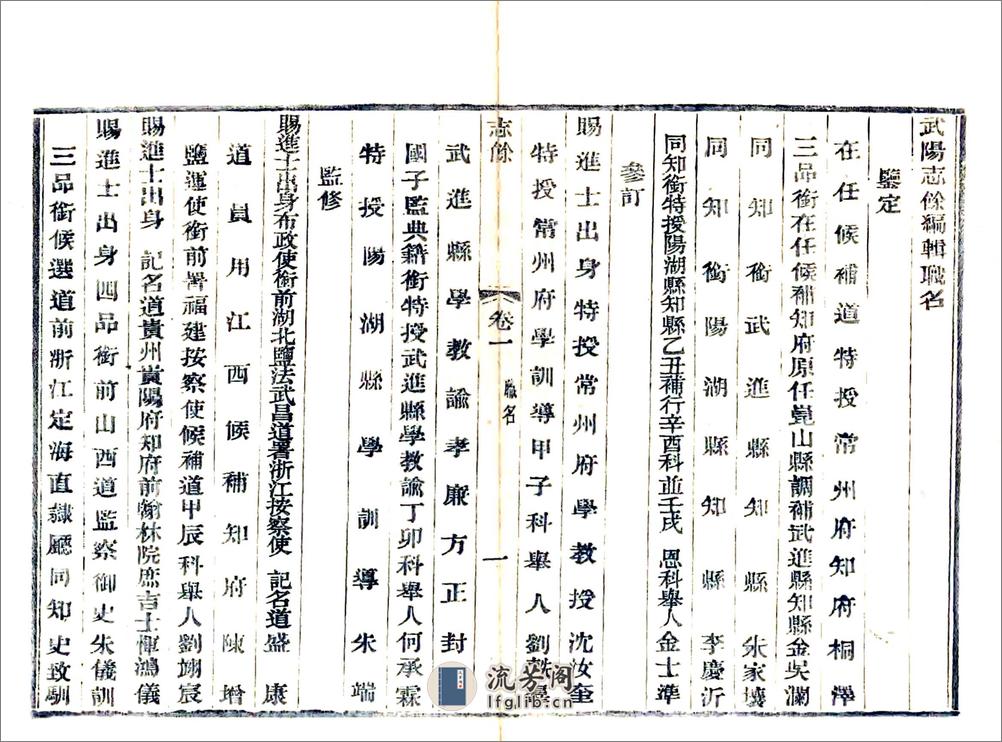 武陽志餘編輯職名
鑒定
在任候補道特授常州府知府桐澤
三品銜在任候補知府原任崑山縣調補武進縣知縣金吳瀾
同知銜武進縣知縣朱家壔
同知銜陽湖縣知縣李慶沂
同知銜特授陽湖縣知縣乙丑補行辛酉科並壬戌 恩科舉人金士準
參訂
賜進士出身特授常州府學教授沈汝奎
特授常州府學訓導甲子科舉人劉
志餘 卷一 職名 一
武進縣學教諭孝廉方正封
國子監典籍銜特授武進縣學教諭丁卯科舉人何承霖
特授陽湖縣學訓導朱端
監修
賜進士出身布政使銜前湖北鹽法武昌道署浙江按察使 記名道盛康
道員用江西候補知府陳增
鹽運使銜前署福建按察使候補道甲辰科舉人劉翊宸
賜進士出身 記名道貴州貴陽府知府前翰林院庶吉士惲鴻儀
賜進士出身四品銜前山西道監察御史朱儀訓
三品銜候選道前浙江定海直隸廳同知史致馴
流芳閣
lfglib.com